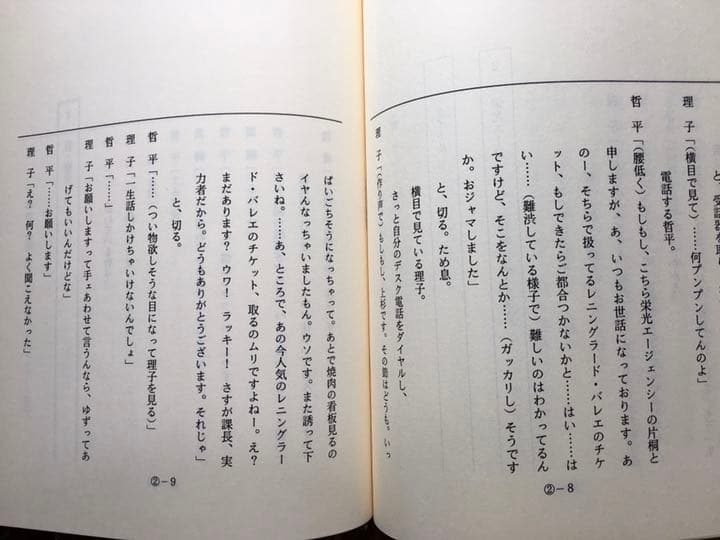 と、受話器を取
理　子「(横目で見て)……何プンプンしてんのよ」
電話する哲平。
哲　平「(腰低く)もしもし、こちら栄光エージェンシーの片桐と
申しますが、あ、いつもお世話になっております。あ
のー、そちらで扱ってるレニングラード・バレエのチケ
ット、もしできたらご都合つかないかと……はい……は
い……(難渋している様子で)難しいのはわかってるん
ですけど、そこをなんとか……(ガッカリし)そうです
か。おジャマしました」
と、切る。ため息。
横目で見ている理子。
さっと自分のデスク電話をダイヤルし、
理　子「(作り声で)もしもし、上杉です。その節はどうも。いっ
②−8
ぱいごちそうになっちゃって。あとで焼肉の看板見るの
イヤんなっちゃいましたもん。ウソです。また誘って下
さいね。……あ、ところで、あの今人気のレニングラー
ド・バレエのチケット、取るのムリですよねー。え？
まだあります？　ウワ！　ラッキー！　さすが課長、実
力者だから。どうもありがとうございます。それじゃ」
と、切る。
哲　平「……(つい物欲しそうな目になって理子を見る)」
理　子「一生話しかけちゃいけないんでしょ」
哲　平「……」
理　子「お願いしますって手ェあわせて言うんなら、ゆずってあ
げてもいいんだけどな」
哲　平「……お願いします」
理　子「え？　何？　よく聞こえなかった」
②−9